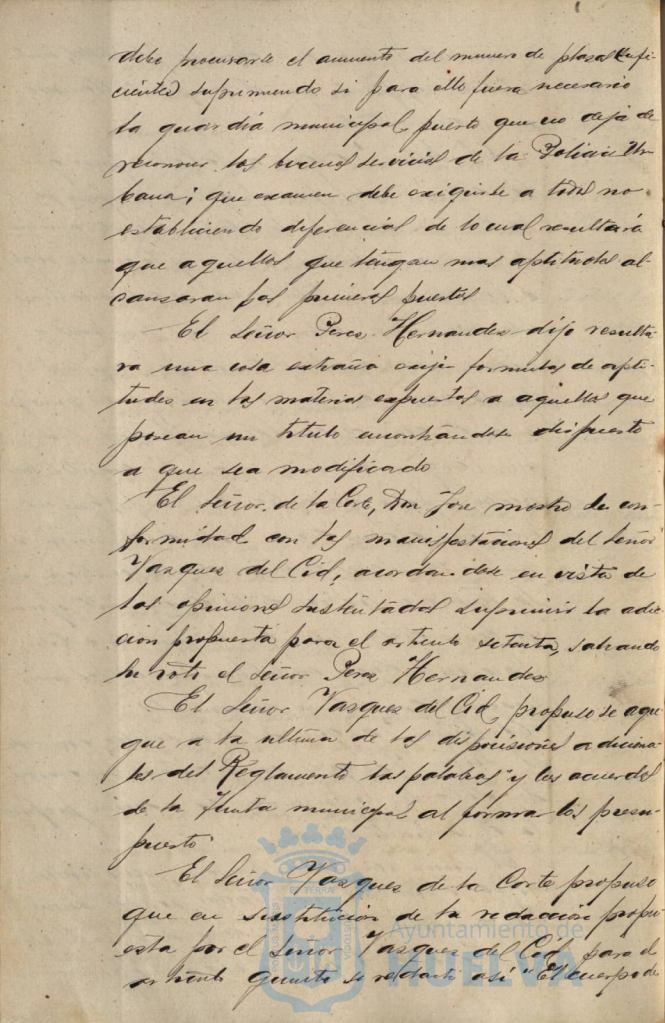 debe procurarse el aumento del numero de plazas sufi-
cientes suprimiendo si para ello fuera necesario
la guardia municipal, puesto que no deja de
reconocer los buenos servicios de la Policia Ur-
bana; que examen debe exigirse a todos no
estableciendo diferencias de lo cual resultará
que aquellos que tengan mas aptitudes al-
canzaran los primeros puestos
El Señor Perez Hernandez dijo resulta-
ra una cosa extraña exijir formulas de apti-
tudes en las materias expuestas a aquellos que
posean un titulo encontrándose dispuesto
a que sea modificado
El Señor de la Corte, Don Jose mostro su con-
formidad con las manifestaciones del Señor
Vazquez del Cid, acordandose en vista de
las opiniones sustentadas suprimir la adi-
cion propuesta para el articulo setenta, salvando
su voto el Señor Perez Hernandez
El Señor Vazquez del Cid, propuso se agre-
gue a la ultima de las disposiciones adiciona-
les del Reglamento las palabras "y los acuerdos
de la Junta municipal al formar los presu-
puesto
El Señor Vazquez de la Corte propuso
que en sustitucion de la redacción propu-
esta por el Señor Vazquez del Cid, para el
articulo quinto se redacte asi "El cuerpo de
Ayuntamiento de
HUELVA